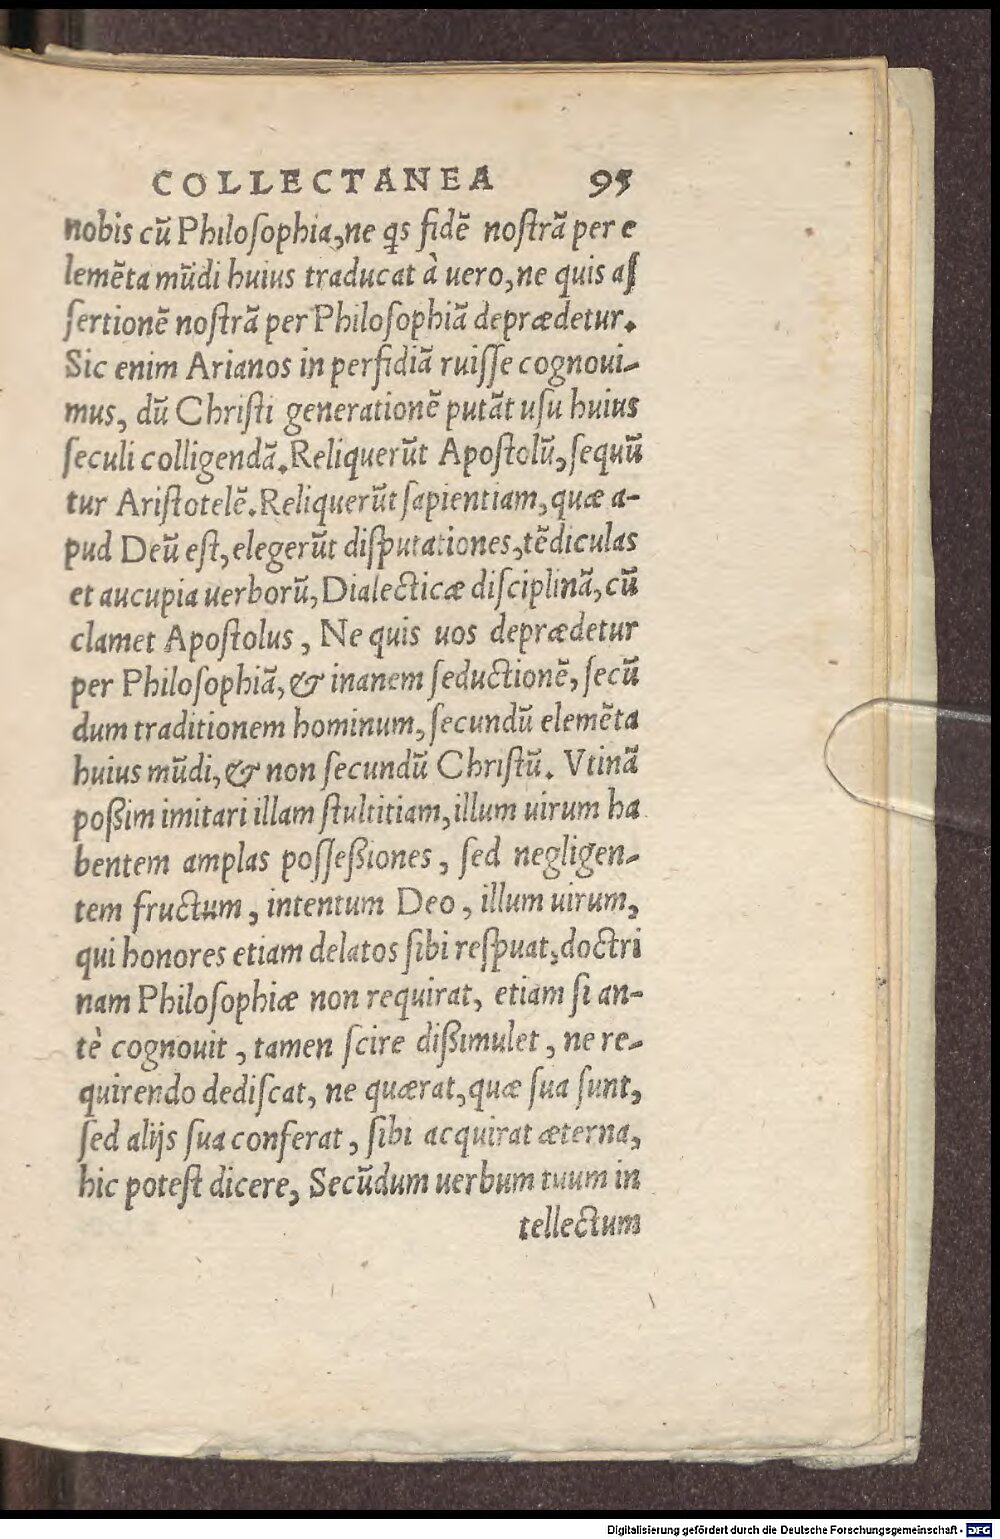 COLLECTANEA 95
nobis cũ Philoſophia, ne qs fidẽ noſtrã per e
lemẽta mũdi huius traducat à uero, ne quis aſ
ſertionẽ noſtrã per Philoſophiã deprædetur.
Sic enim Arianos in perfidiã ruiſſe cognoui-
mus, dũ Chriſti generationẽ putãt uſu huius
ſeculi colligendã. Reliquerũt Apoſtolũ, ſequũ
tur Ariſtotelẽ. Reliquerũt ſapientiam, quæ a-
pud Deũ eſt, elegerũt diſputationes, tẽdiculas
et aucupia uerborũ, Dialecticæ diſciplinã, cũ
clamet Apoſtolus, Ne quis uos deprædetur
per Philoſophiã, & inanem ſeductionẽ, ſecũ
dum traditionem hominum, ſecundũ elemẽta
huius mũdi, & non ſecundũ Chriſtũ. Vtinã
poßim imitari illam ſtultitiam, illum uirum ha
bentem amplas poſſeßiones, ſed negligen-
tem fructum, intentum Deo, illum uirum,
qui honores etiam delatos ſibi reſpuat, doctri
nam Philoſophiæ non requirat, etiam ſi an-
tè cognouit, tamen ſcire dißimulet, ne re-
quirendo dediſcat, ne quærat, quæ ſua ſunt,
ſed alijs ſua conferat, ſibi acquirat æterna,
hic poteſt dicere, Secũdum uerbum tuum in
tellectum
Digitalisierung gefördert durch die Deutsche Forschungsgemeinschaft - DFG